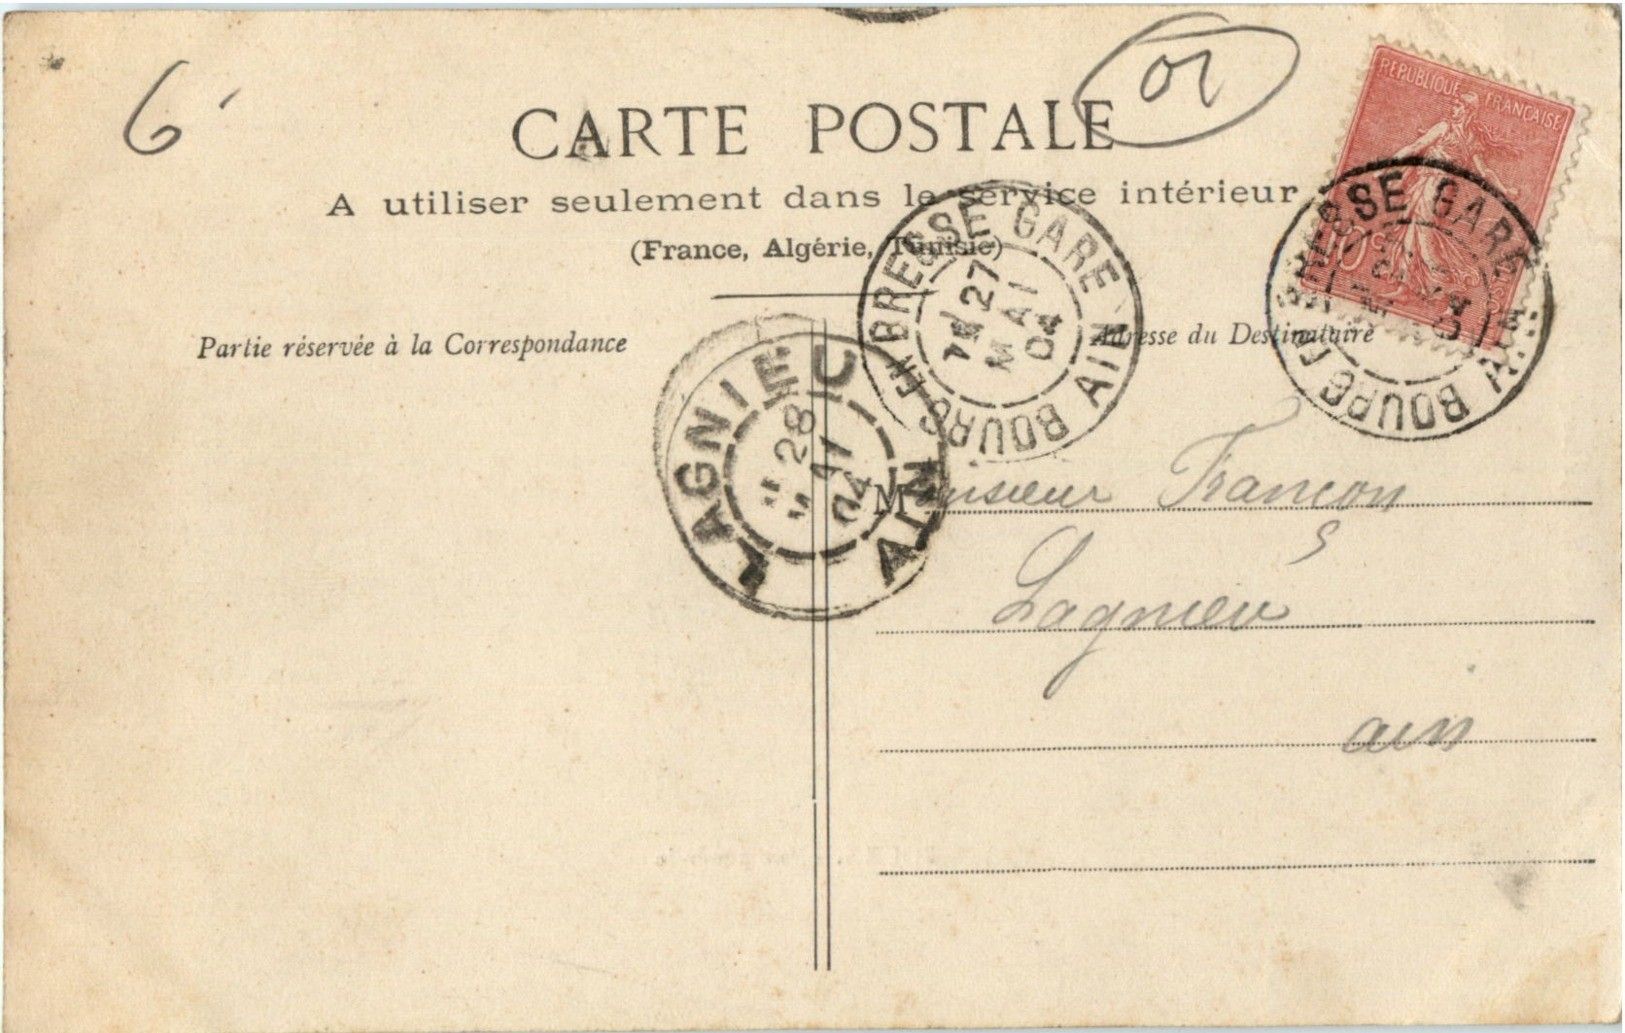 6
01
CARTE POSTALE
A utiliser seulement dans le service intérieur
(France, Algérie, Tunisie)
REPUBLIQUE FRANÇAISE
BOURG EN BRESSE GARE AIN
27
MAI
04
BOURG EN BRESSE GARE
Partie réservée à la Correspondance
Adresse du Destinataire
LAGNIEU AIN
28
MAI
04
Monsieur Françon
Lagnieu
ain